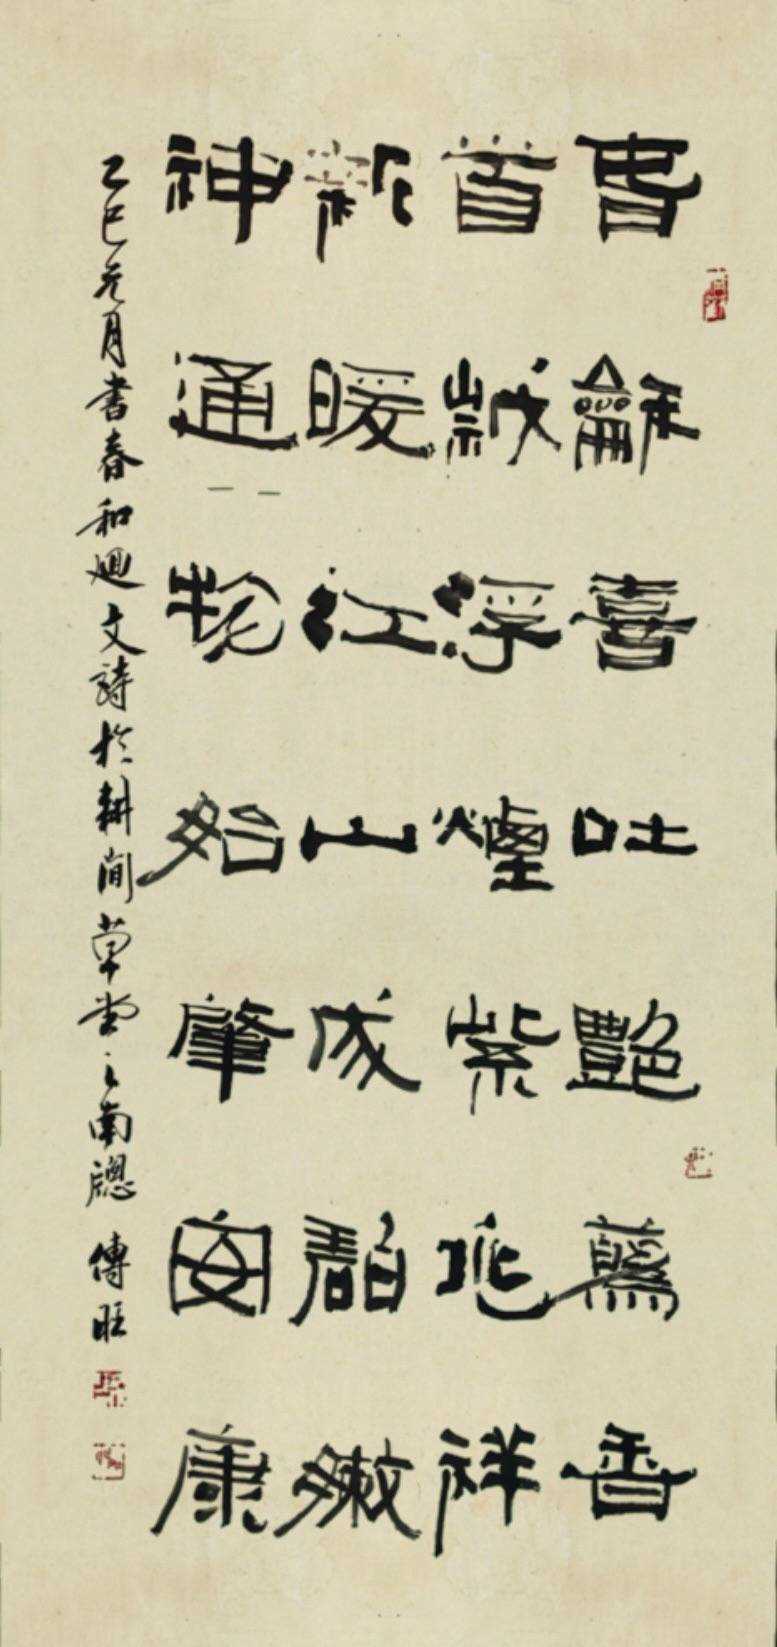 春龢喜吐艷薰香
首歲浮煙紫兆祥
新暖江山成碧嫩
神通物始肇安康
乙巳元月書春和迴文詩於耕閒草堂之南牕 傅旺